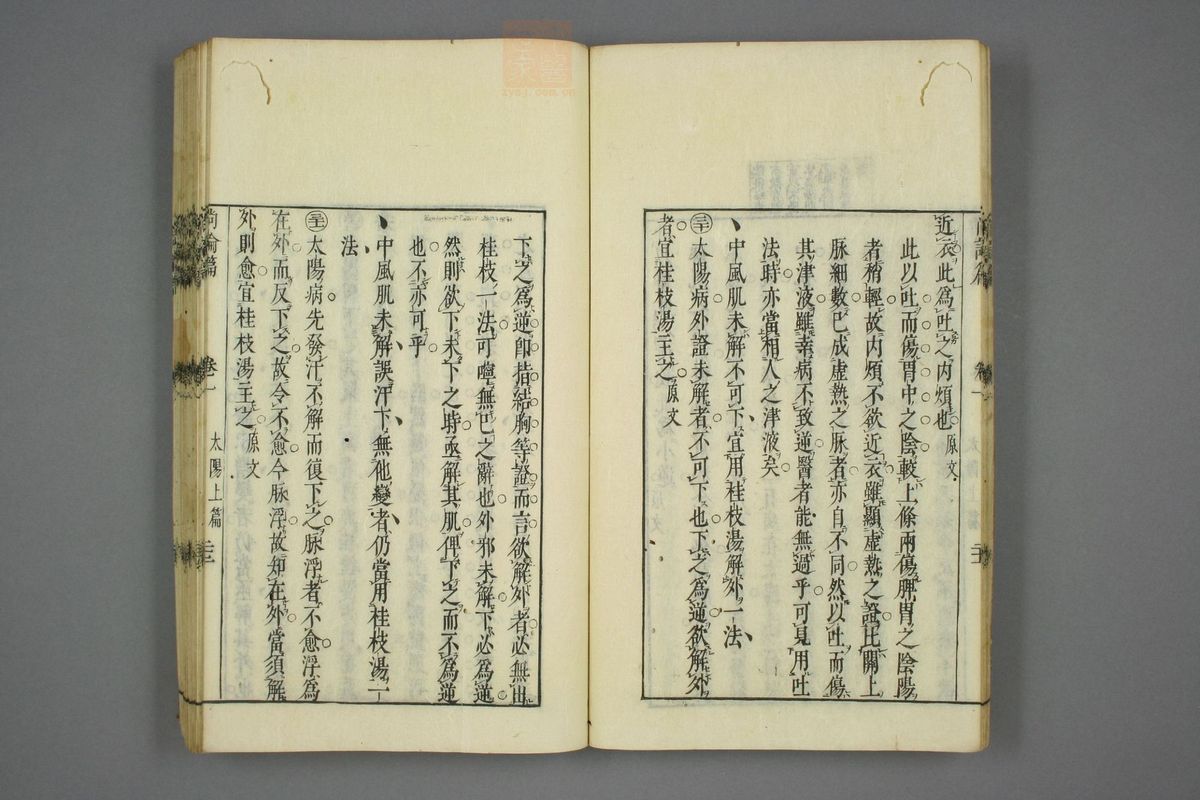 近衣此爲吐之内煩也 原文
此以吐而傷胃中之陰較上條兩傷脾胃之陰陽
者稍輕故内煩不欲近衣雖顯虛熱之證比關上
脉細數已成虛熱之脉者亦自不同然以吐而傷
其津液雖幸病不致逆醫者能無過乎可見用吐
法時亦當相人之津液矣
中風肌未解不可下宜用桂枝湯解外一法
太陽病外證未解者不可下也下之爲逆欲解外
者宜桂枝湯主之 原文
下之爲逆卽指結胸等證而言欲解外者必無出
桂枝一法叮嚀無已之辭也外邪未解下必爲逆
然則欲下未下之時亟解其肌俾下之而不爲逆
也不亦可乎
中風肌未解誤汗下無他變者仍當用桂枝湯一
法
太陽病先發汗不解而復下之脉浮者不愈浮爲
在外而反下之故令不愈今脉浮故知在外當須解
外則愈宜桂枝湯主之 原文
尚論篇 卷一 太陽上篇
zysj.com.cn